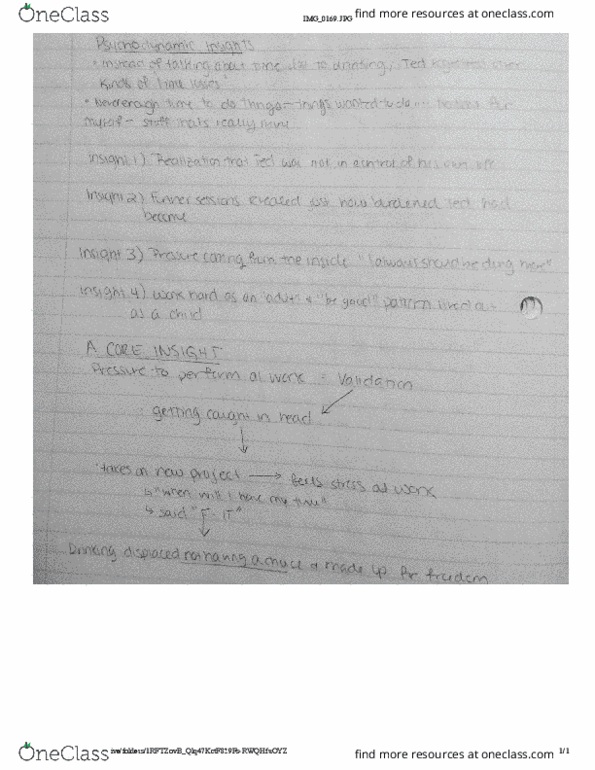 OneClass
IMG_0169.JPG
find more resources at oneclass.com
Psychodynamic Insights
• Instead of talking about time due to drinking, Ted over
kinds of time losses"
• Never enough time to do things - things wanted to do for
myself - stuff that's really mine
Insight 1) Realization that Ted was not in control of his own life
Insight 2) Further sessions revealed just how burdened Ted had
become
Insight 3) Pressure coming from the inside "I always should be doing more"
Insight 4) work hard as an adult & "be good" pattern lived
as a child
A CORE INSIGHT
Pressure to perform at work = Validation
getting caught in head
takes on new project → feels stress at work
↳ "when will I have my time"
↳ said "F-IT"
Drinking displaced not having a choice & made up for freedom
OneClass
find more resources at oneclass.com
1/1